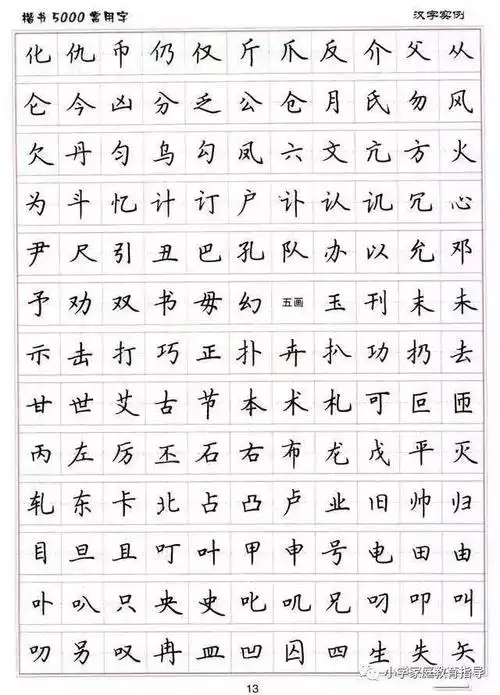 楷书5000常用字 汉字实例
化 仇 币 仍 仅 斤 爪 反 介 父 从
仑 今 凶 分 乏 公 仓 月 氏 勿 风
欠 丹 匀 乌 勾 凤 六 文 亢 方 火
为 斗 忆 计 订 户 讣 认 讥 冗 心
尹 尺 引 丑 巴 孔 队 办 以 允 邓
予 劝 双 书 毋 幻 五画 玉 刊 末 未
示 击 打 巧 正 扑 卉 扒 功 扔 去
甘 世 艾 古 节 本 术 札 可 叵 匝
丙 左 厉 丕 石 右 布 龙 戊 平 灭
轧 东 卡 北 占 凸 卢 业 旧 帅 归
目 旦 且 叮 叶 甲 申 号 电 田 由
卟 叭 只 央 史 叱 叽 兄 叼 叩 叫
叨 另 叹 冉 皿 凹 囚 四 生 失 矢
13
小学家庭教育指导